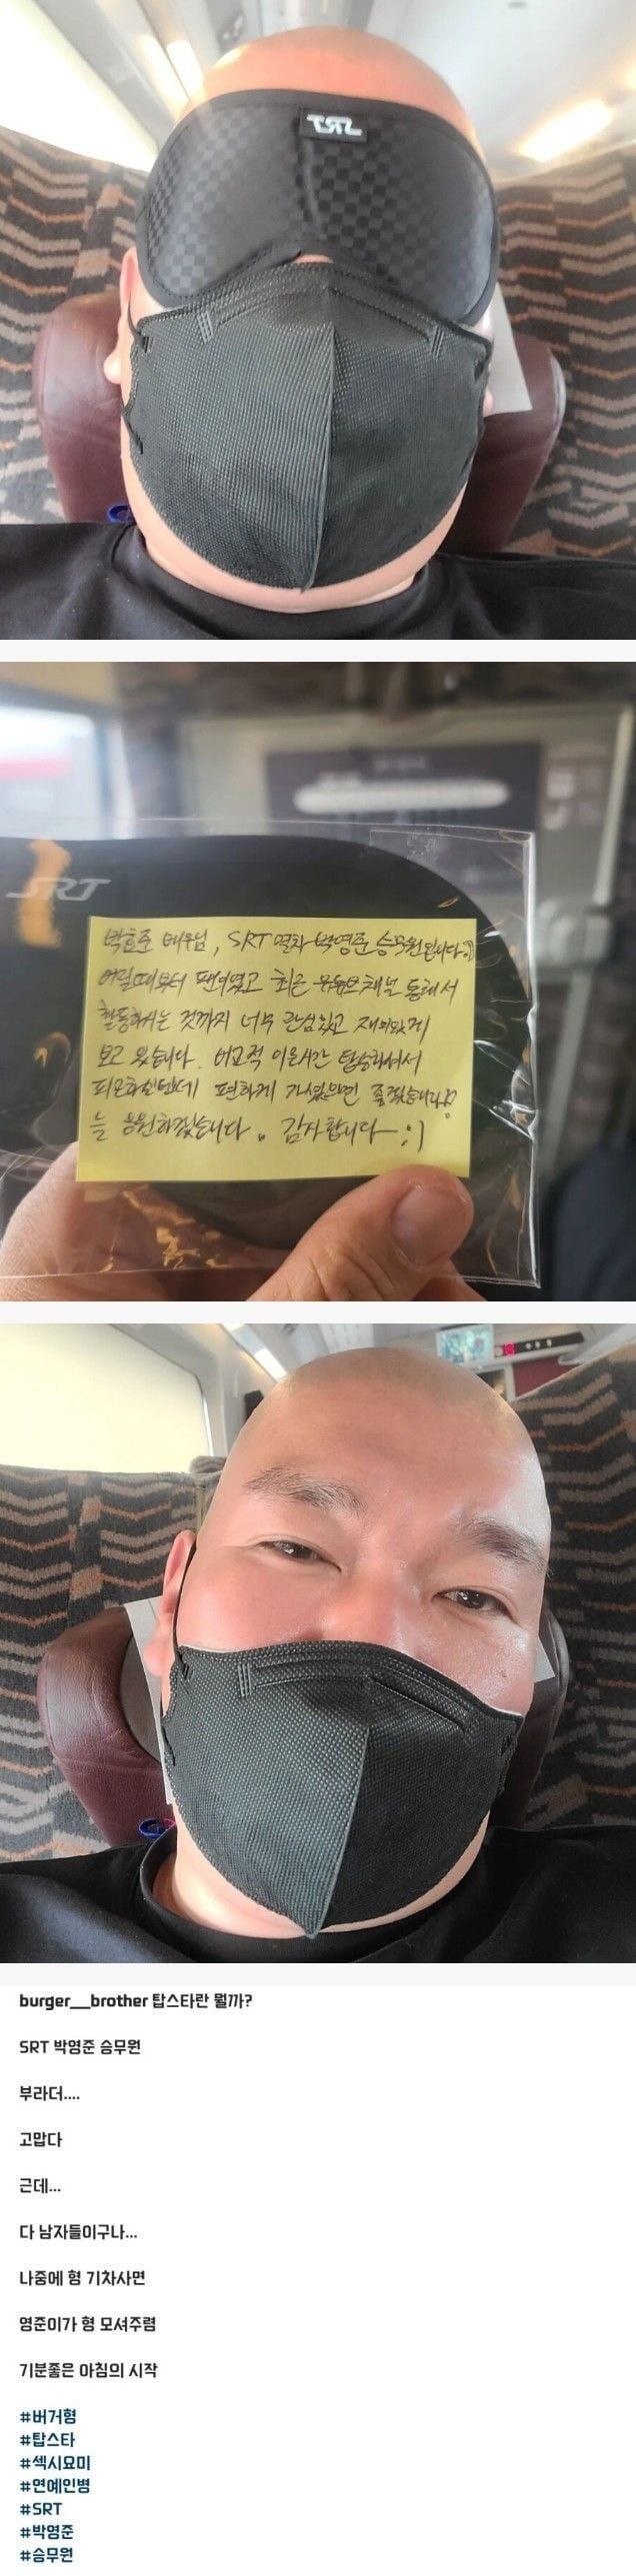 SRT
SRT
박효준 배우님, SRT 열차 박영준 승무원입니다.
어릴때부터 팬이였고 최근 유튜브 채널 통해서
활동하시는 것까지 너무 관심있고 재미있게
보고 있습니다. 비교적 이른시간 탑승하셔서
피곤하실텐데 편하게 가셨으면 좋겠습니다!
늘 응원하겠습니다. 감사합니다~ :)
burger__brother 탑스타란 뭘까?
SRT 박영준 승무원
부라더....
고맙다
근데...
다 남자들이구나...
나중에 형 기차사면
영준이가 형 모셔주렴
기분좋은 아침의 시작
#버거형
#탑스타
#섹시요미
#연예인병
#SRT
#박영준
#승무원